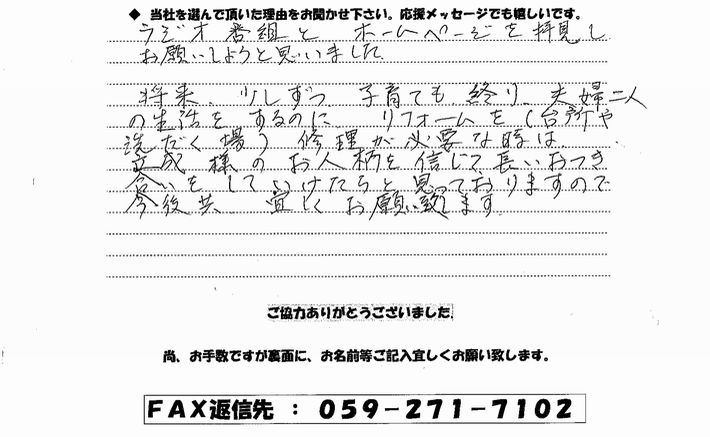 ◆ 当社を選んで頂いた理由をお聞かせ下さい。応援メッセージでも嬉しいです。
ラジオ番組と ホームページを拝見し
お願いしようと思いました
将来、少しずつ 子育ても 終り、夫婦二人
の生活をするのに リフォームを(台所や
洗だく場) 修理が必要な時は、
立成様のお人柄を信じて長いおつき
合いをしていけたらと思っておりますので
今後共 宜しくお願い致します
ご協力ありがとうございました。
尚、お手数ですが裏面に、お名前等ご記入宜しくお願い致します。
FAX返信先 : 059-271-7102